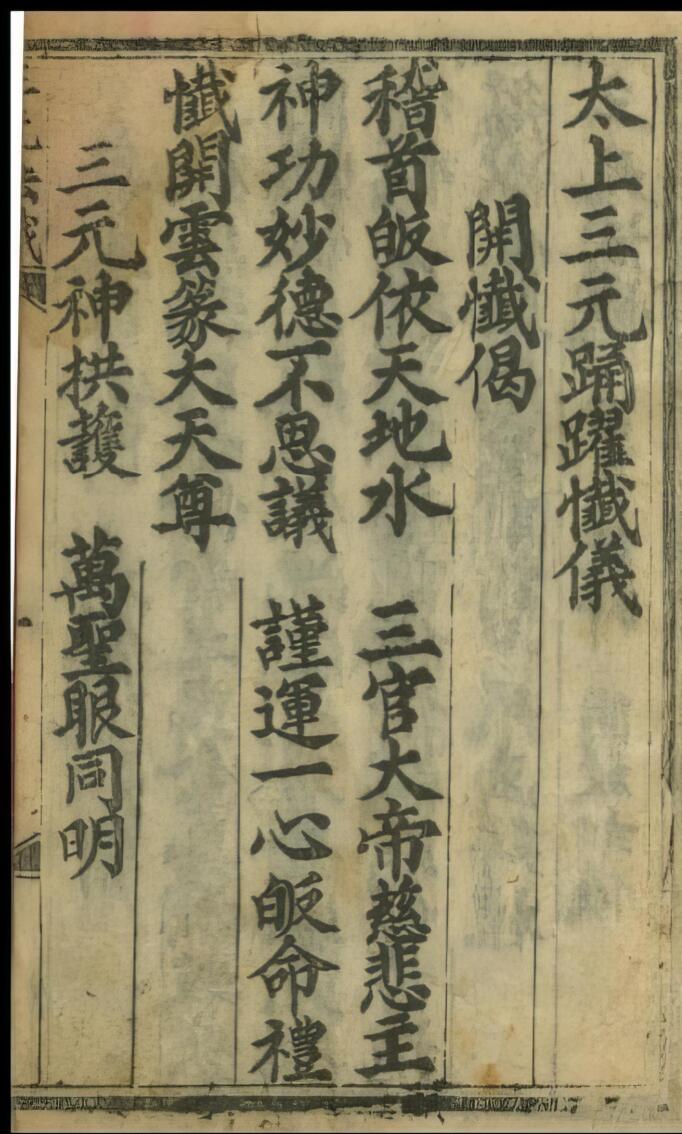 太上三元踊躍懺儀
開懺偈
稽首皈依天地水　三官大帝慈悲主
神功妙德不思議　謹運一心皈命禮
懺開雲篆大天尊
三元神拱護　萬聖眼同明